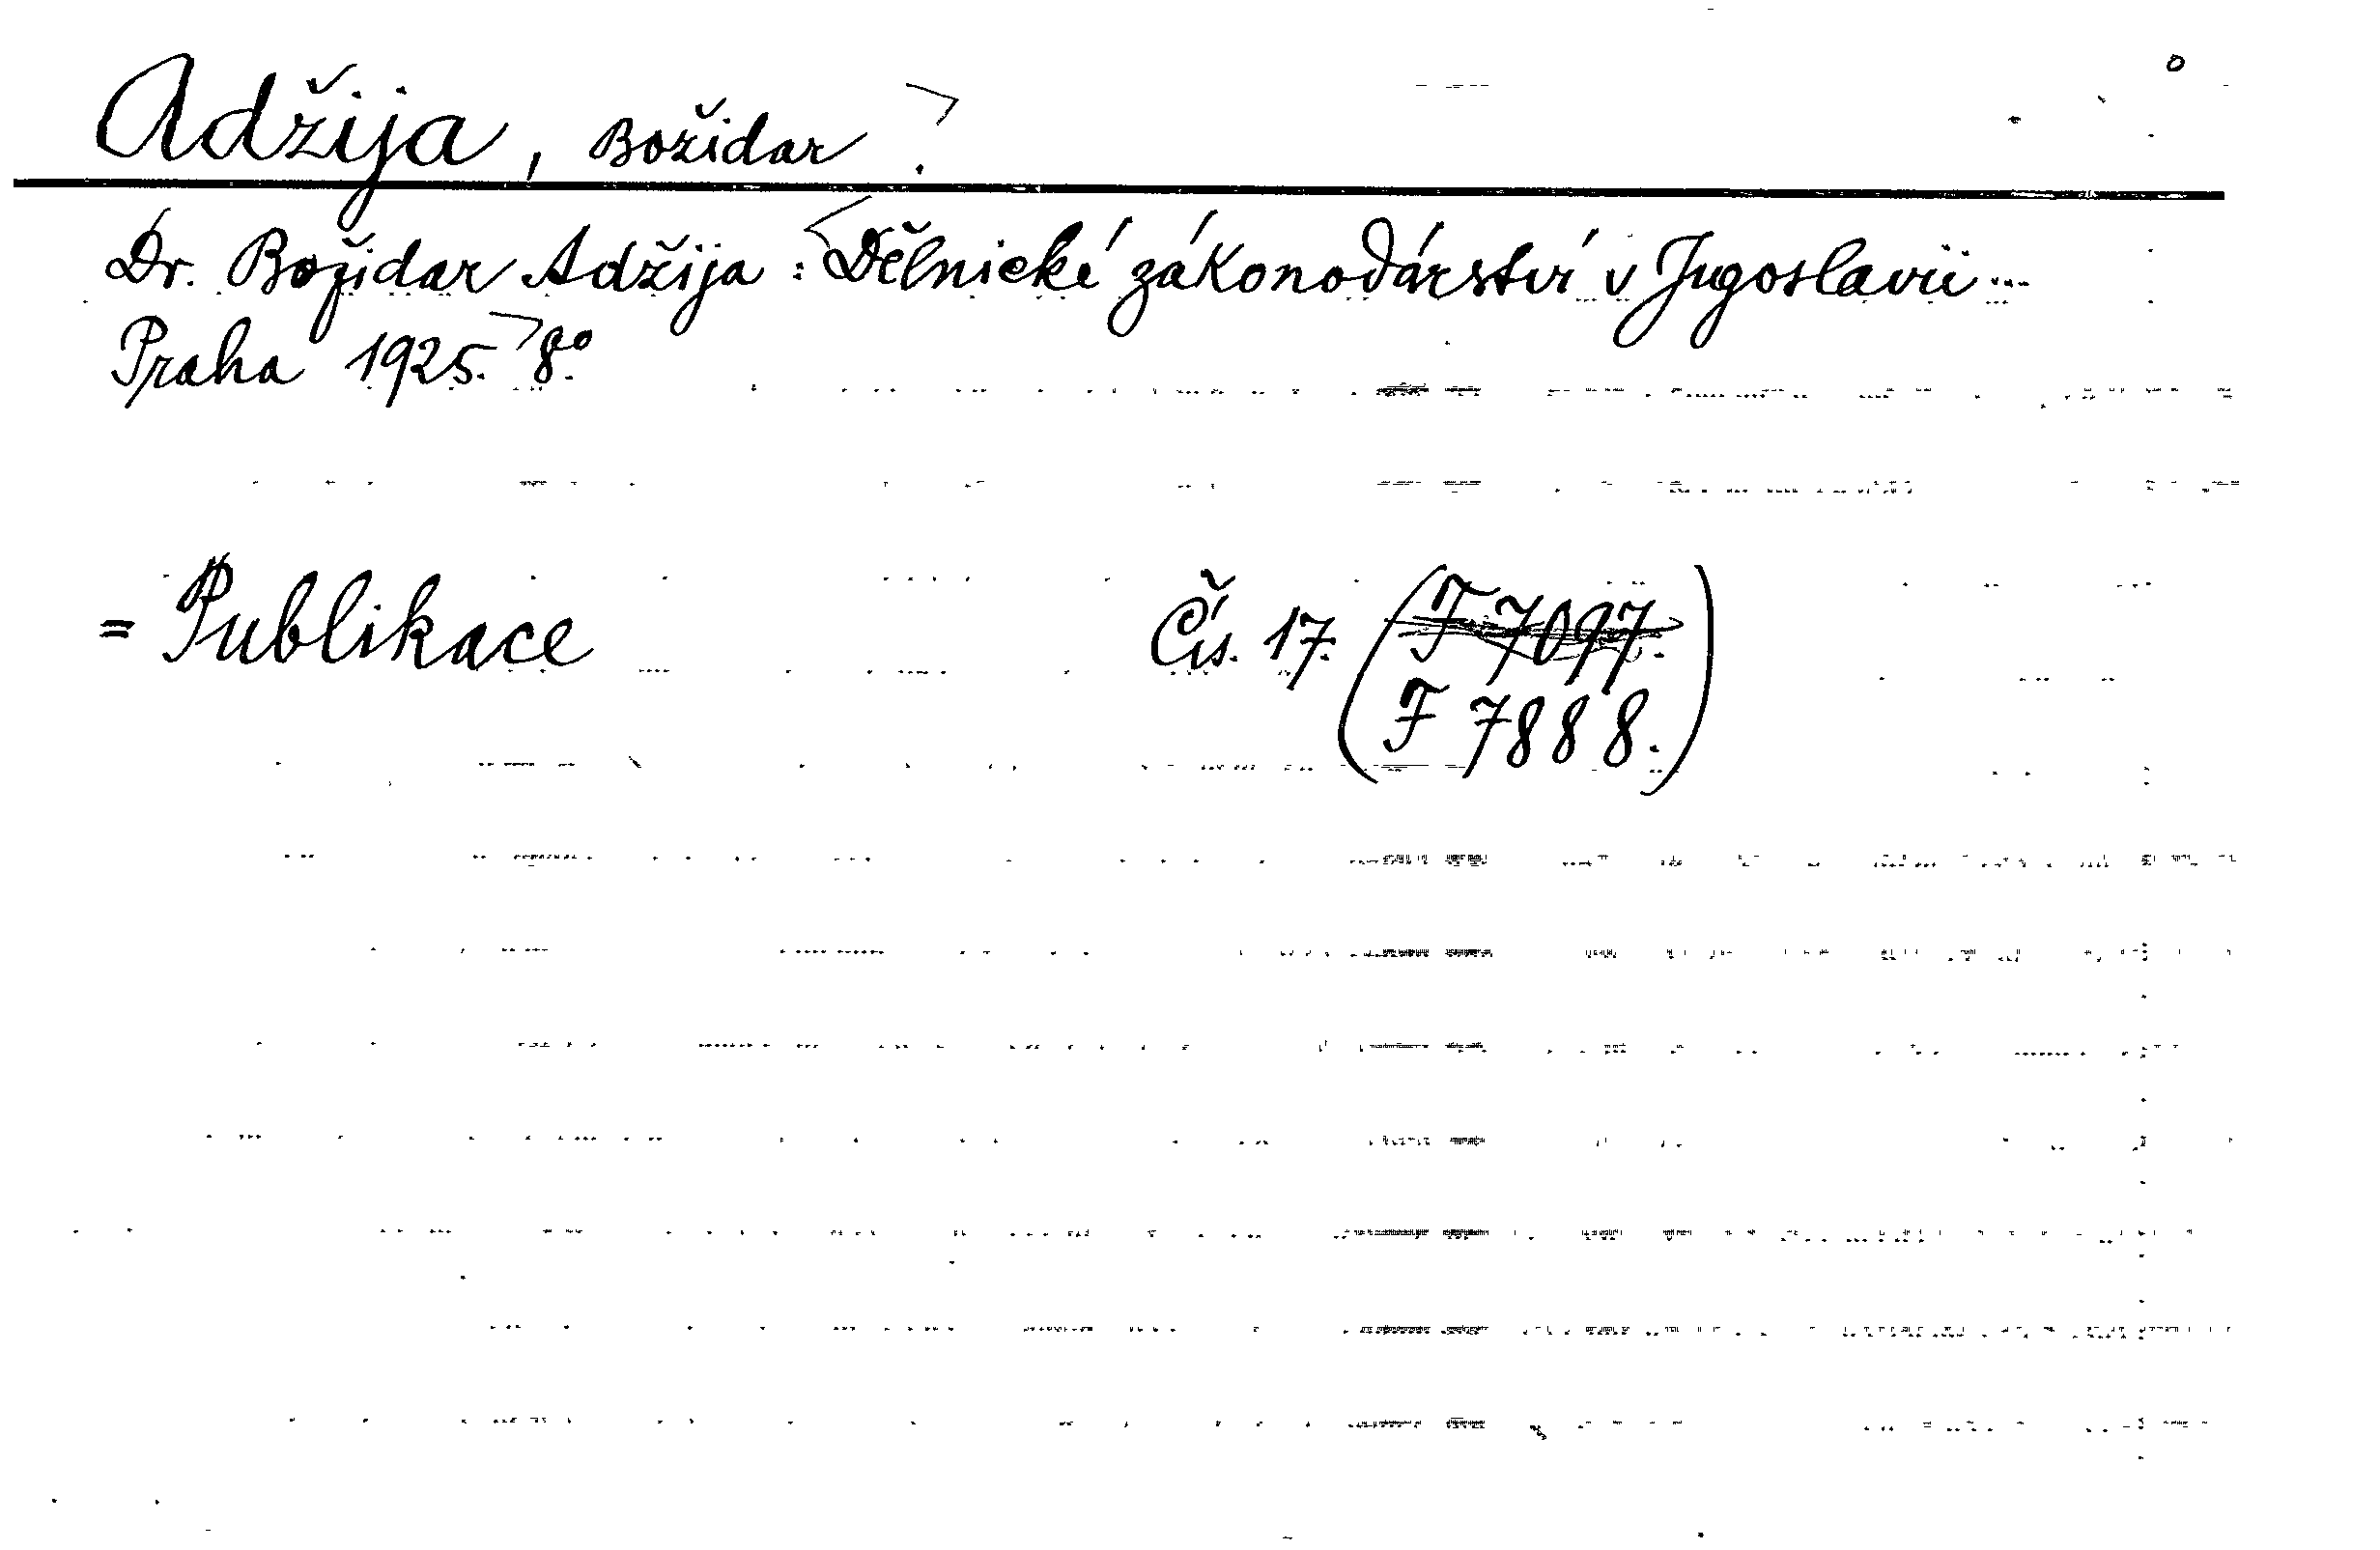 Adžija, Božidar.
Dr. Božidar Adžija: Dělnické zákonodárství v Jugoslavii...
Praha 1925. 8°.
= Publikace Čís. 17. (F 7097.
F 7888.)